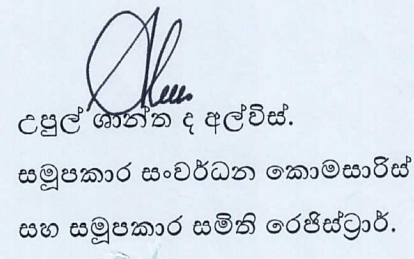 උපුල් ශාන්ත ද අල්විස්.
සමූපකාර සංවර්ධන කොමසාරිස්
සහ සමූපකාර සමිති රෙජිස්ට්‍රාර්.